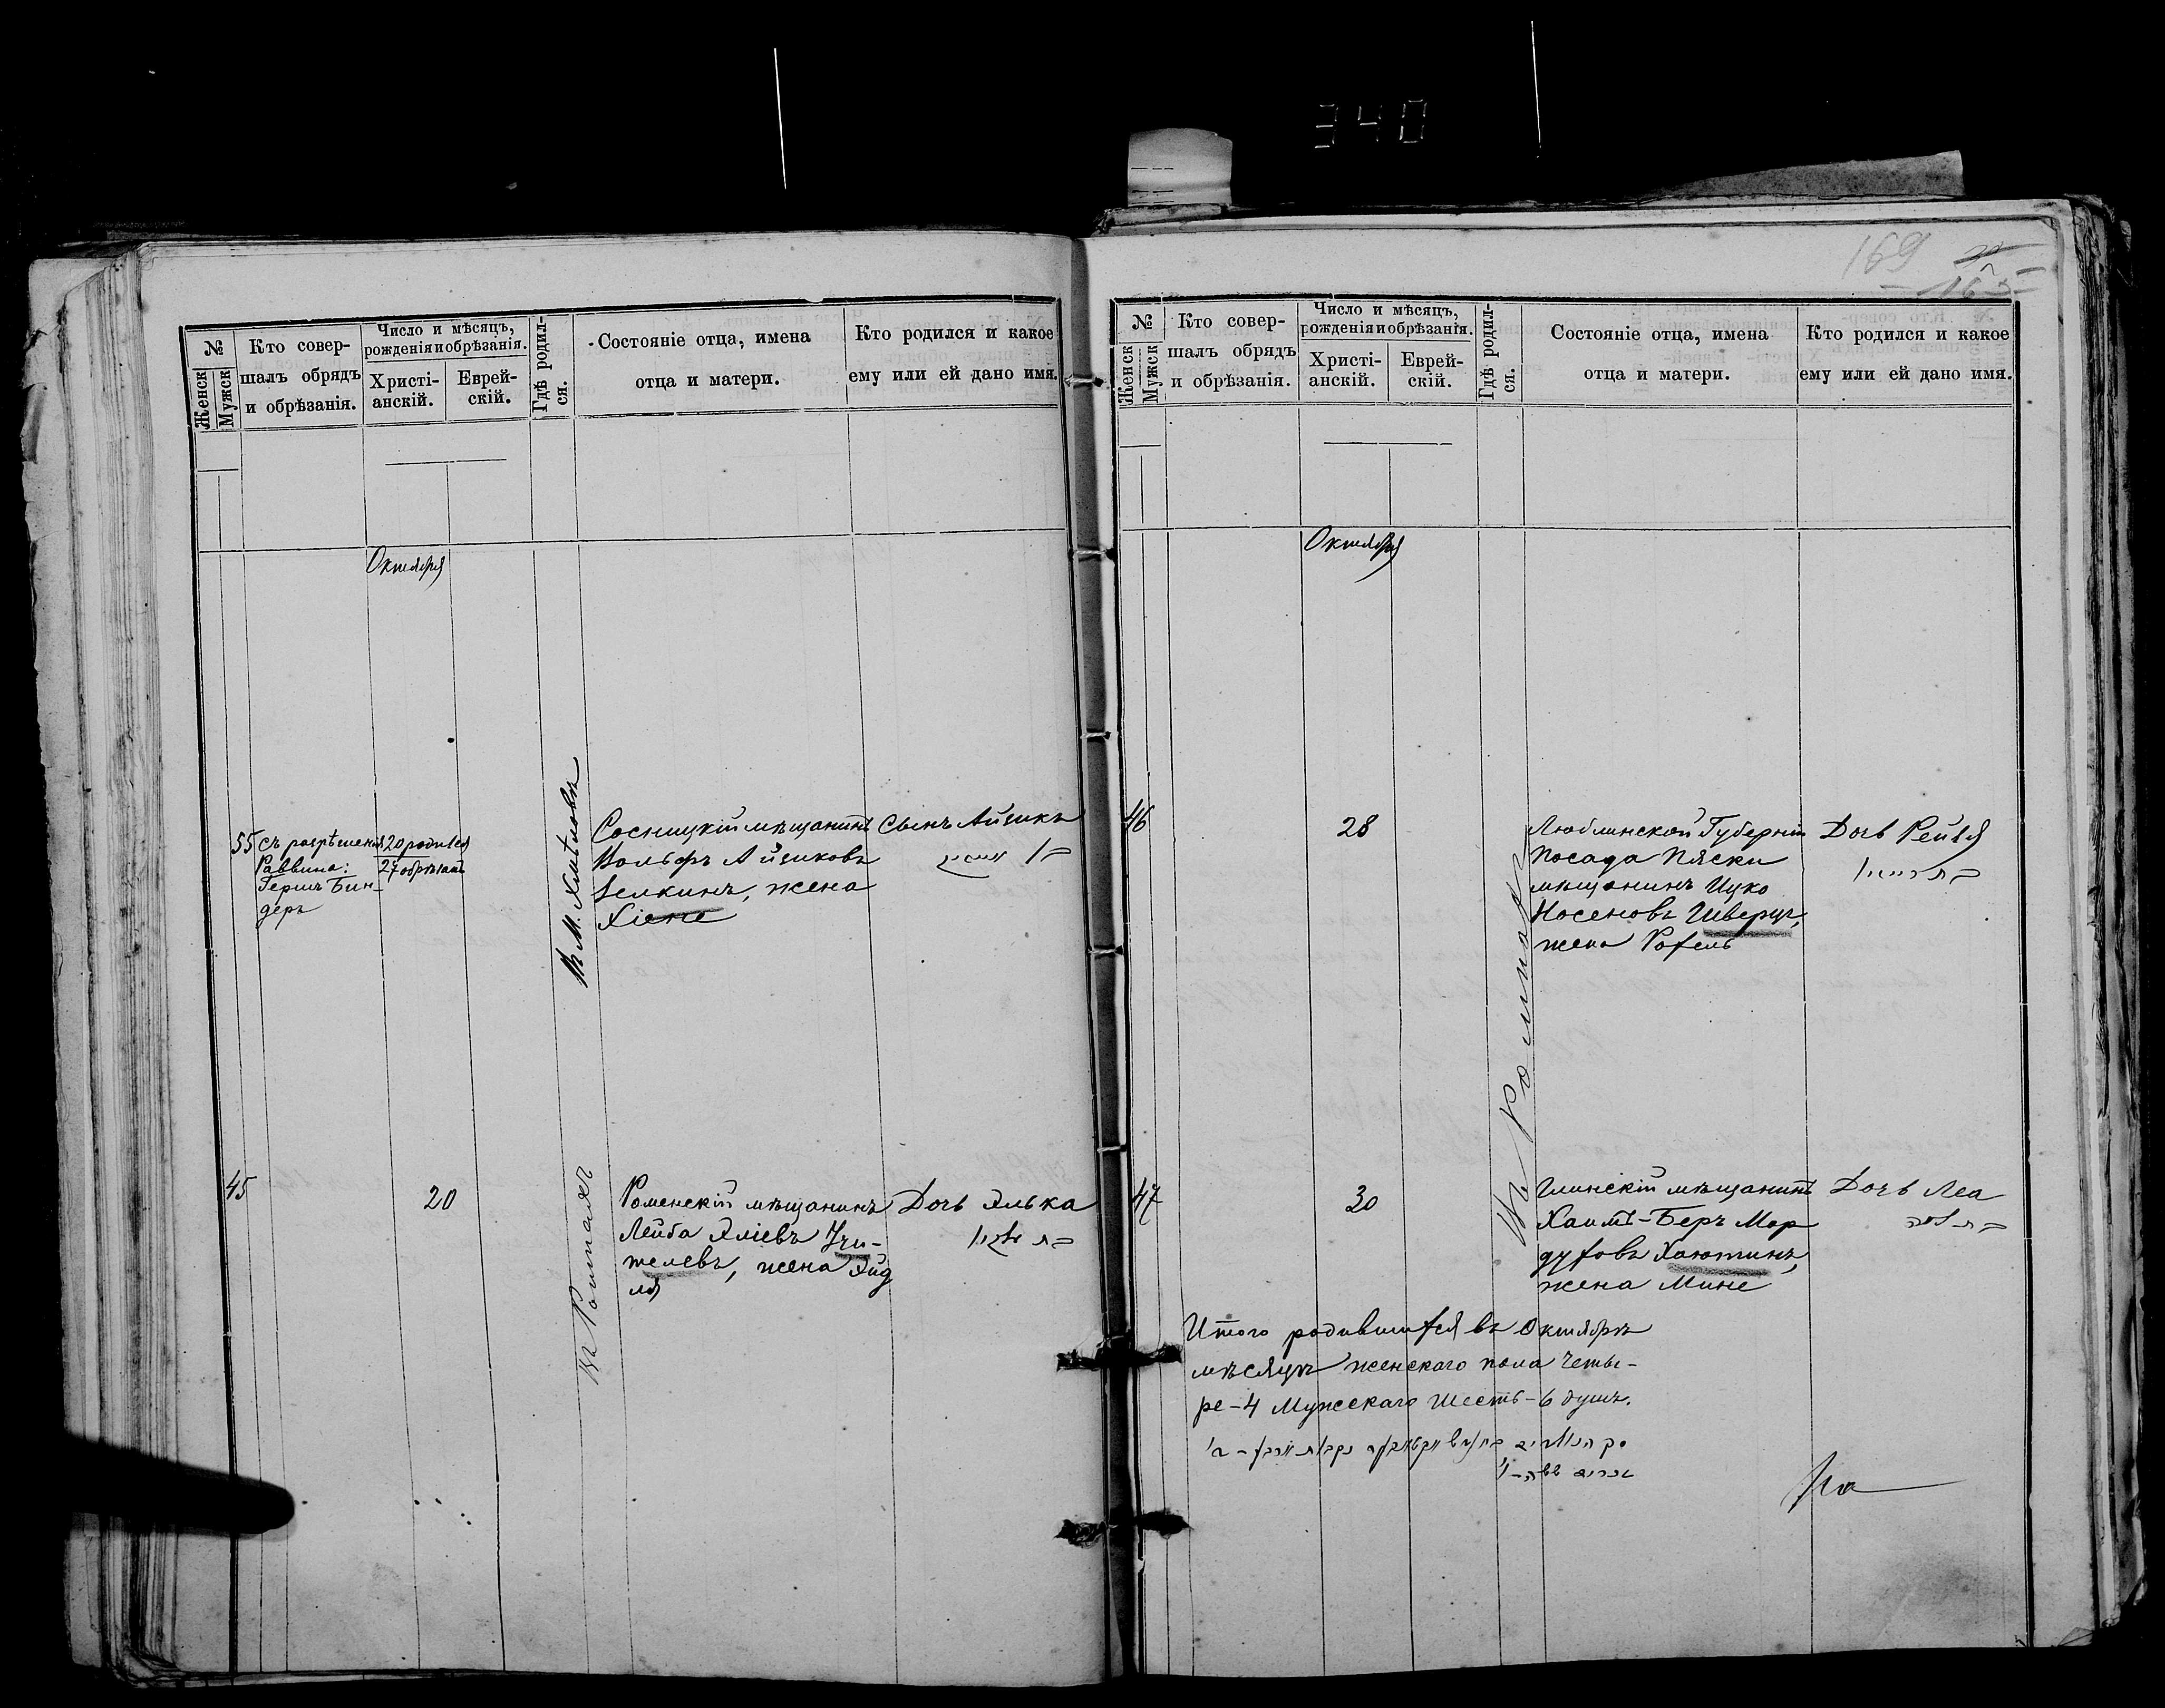 340
№
Женск
Мужск
Кто совер-
шалъ обрядъ
и обрѣзанія.
Число и мѣсяцъ,
рожденія и обрѣзанія.
Христі-
анскій.
Еврей-
скій.
Гдѣ родил-
ся.
Состояніе отца, имена
отца и матери.
Кто родился и какое
ему или ей дано имя.
Октября
55
Съ разрѣшенія
Раввина:
Гершъ Бин-
деръ
20 родился
27 обрѣзанъ
Въ М. Хмѣловѣ
Сосницкій мѣщанинъ
Вольфъ Айзиковъ
Зелкинъ, жена
Хіене
Сынъ Айзикъ
45
20
Въ Ромнахъ
Роменскій мѣщанинъ
Лейба Эліевъ Учи-
телевъ, жена Эйд
ля
Дочь Элька
169
165
№
Женск
Мужск
Кто совер-
шалъ обрядъ
и обрѣзанія.
Число и мѣсяцъ,
рожденія и обрѣзанія.
Христі-
анскій.
Еврей-
скій.
Гдѣ родил-
ся.
Состояніе отца, имена
отца и матери.
Кто родился и какое
ему или ей дано имя.
Октября
46
28
Въ Ромнахъ
Люблинской Губерніи
посада Пяски
мѣщанинъ Ицко
Носеновъ Шверцъ,
жена Рахель
Дочь Рейзя
47
30
Глинскій мѣщанинъ
Хаимъ-Беръ Мор
духовъ Хаютинъ,
жена Мине
Дочь Леа
Итого родившихся въ Октябрѣ
мѣсяцѣ женскаго пола четы-
ре-4 Мужескаго шесть-6 душъ.